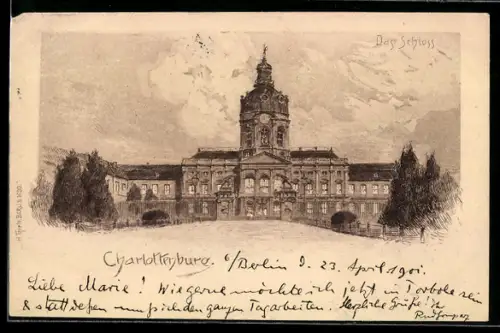 Das Schloss
Charlottenburg. b/Berlin d. 23. April 1901.
Liebe Marie! Wie gerne möchte ich jetzt in Torbole sein
& statt dessen muss ich den ganzen Tag arbeiten. Herzliche Grüße! Dr